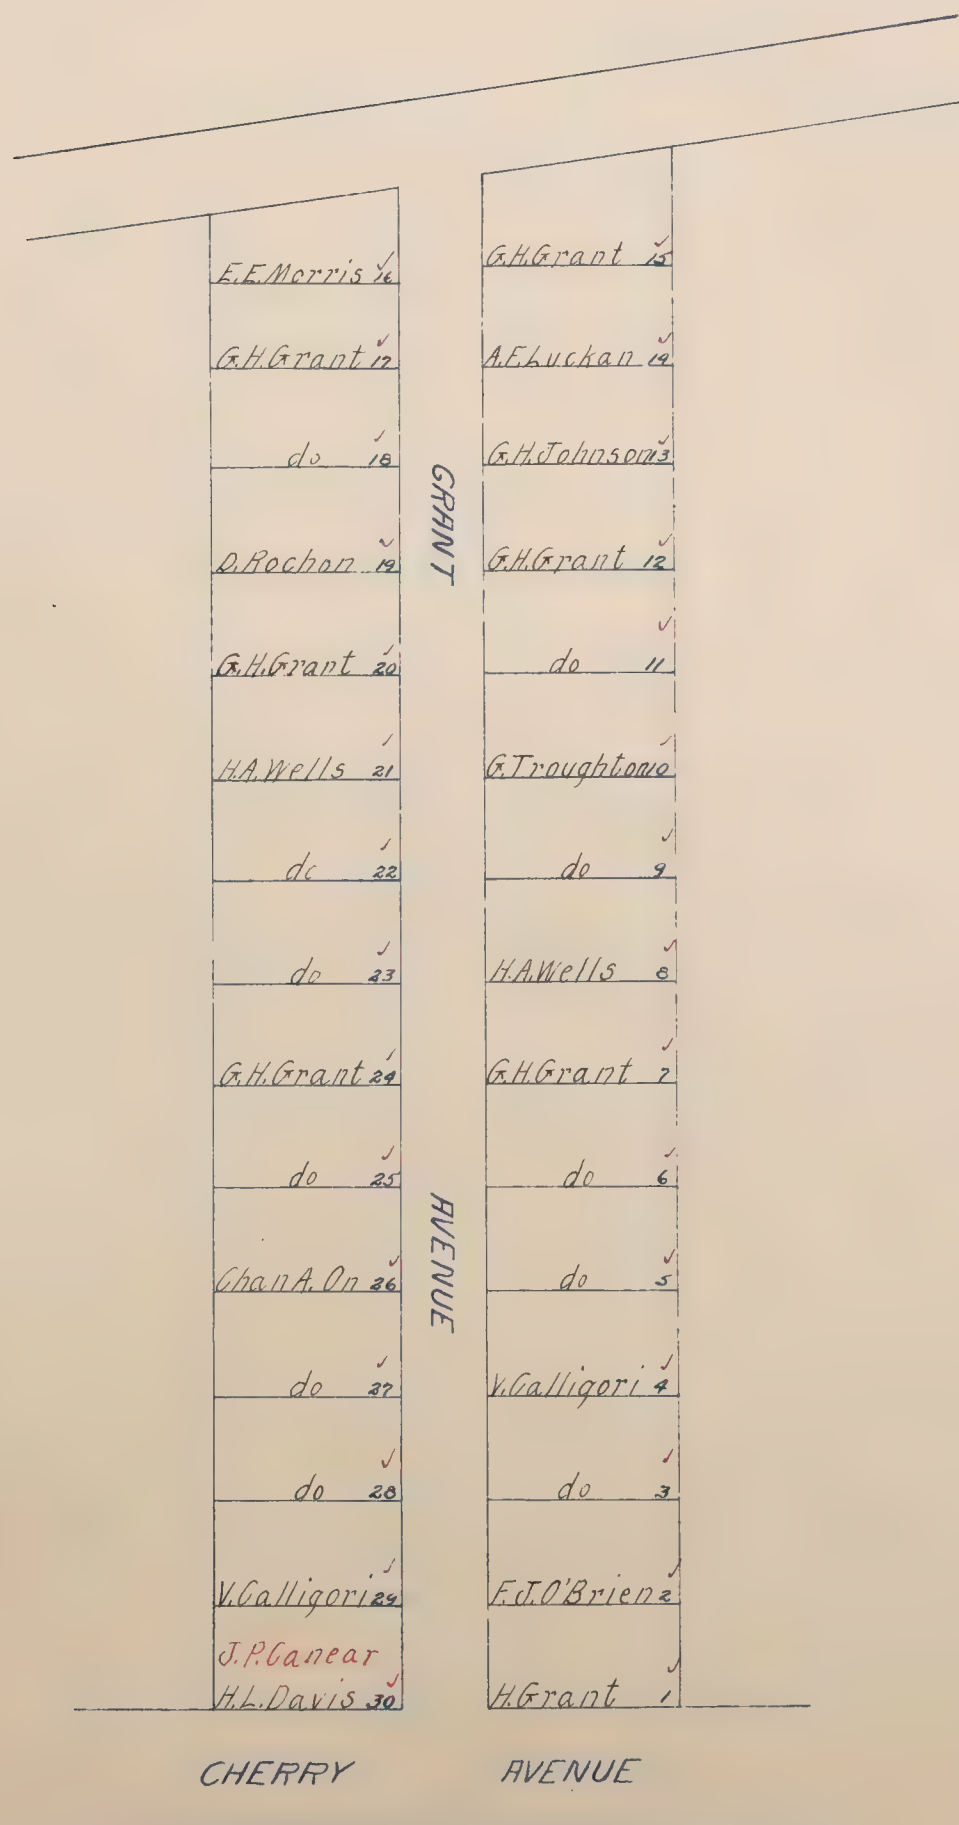 E.E.Morris 16
G.H.Grant 17
do 18
D.Rochon 19
G.H.Grant 20
H.A.Wells 21
do 22
do 23
G.H.Grant 24
do 25
Chan A. On 26
do 27
do 28
V.Calligori 29
J.P.Canear
H.L.Davis 30
GRANT
AVENUE
G.H.Grant 15
A.E.Luckan 14
G.H.Johnson 13
G.H.Grant 12
do 11
G.Troughton 10
do 9
H.A.Wells 8
G.H.Grant 7
do 6
do 5
V.Calligori 4
do 3
F.J.O'Brien 2
H.Grant 1
CHERRY AVENUE